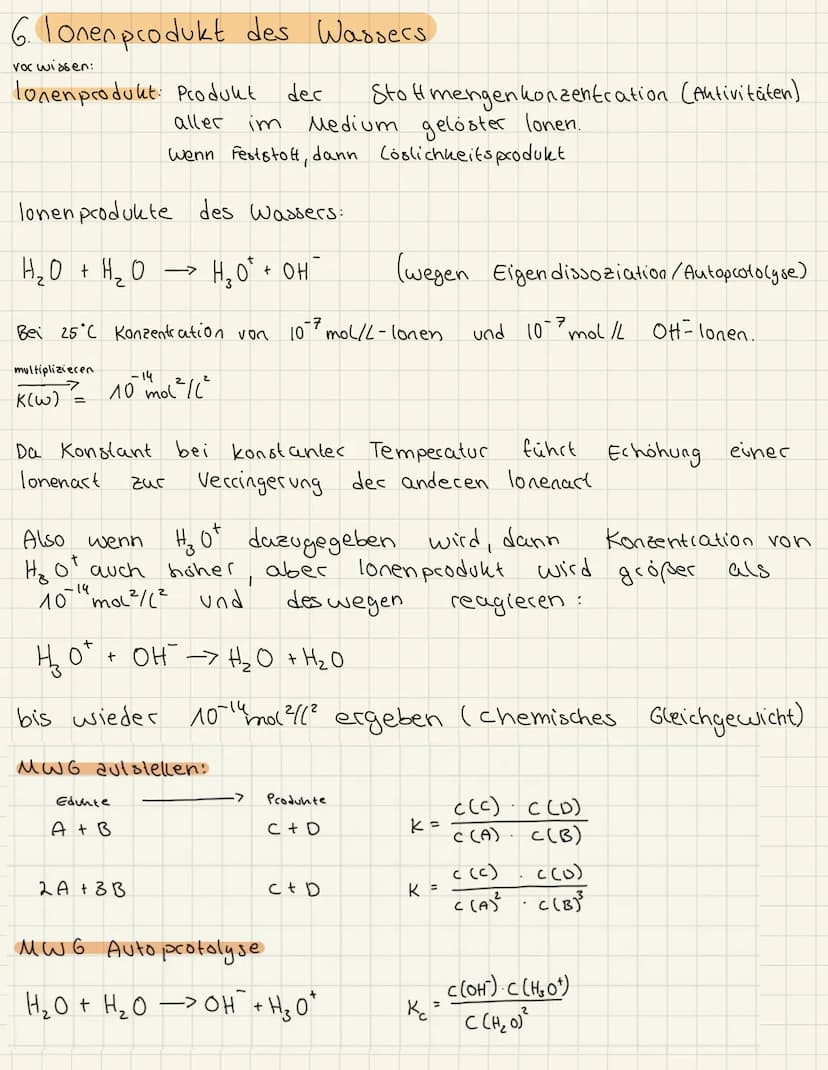 6. Ionenprodukt des Wassers
vorwissen:
Ionenprodukt: Produkt der Stoffmengenkonzentration (Aktivitäten)
aller im Medium gelöster Ionen.
wenn Feststoff, dann Löslichkeitsprodukt
Ionenprodukte des Wassers:
H₂O + H₂O → H₃O⁺ + OH⁻ (wegen Eigendissoziation/Autoprotolyse)
Bei 25°C Konzentration von 10⁻⁷ mol/L-Ionen und 10⁻⁷ mol/L OH⁻-Ionen.
multiplizieren
→ K(W) = 10⁻¹⁴ mol²/L²
Da Konstant bei konstanter Temperatur führt Erhöhung einer
Ionenart zur Verringerung der anderen Ionenart
Also wenn H₃O⁺ dazugegeben wird, dann Konzentration von
H₃O⁺ auch höher, aber Ionenprodukt wird größer als
10⁻¹⁴ mol²/L² und deswegen reagieren:
H₃O⁺ + OH⁻ → H₂O + H₂O
bis wieder 10⁻¹⁴ mol²/L² ergeben (chemisches Gleichgewicht)
MWG aufstellen:
Edukte → Produkte
A + B C + D K = c(C) · c(D) / c(A) · c(B)
2A + 3B C + D K = c(C) · c(D) / c(A)² · c(B)³
MWG Autoprotolyse
H₂O + H₂O → OH⁻ + H₃O⁺ K_c = c(OH⁻) · c(H₃O⁺) / c(H₂O)²